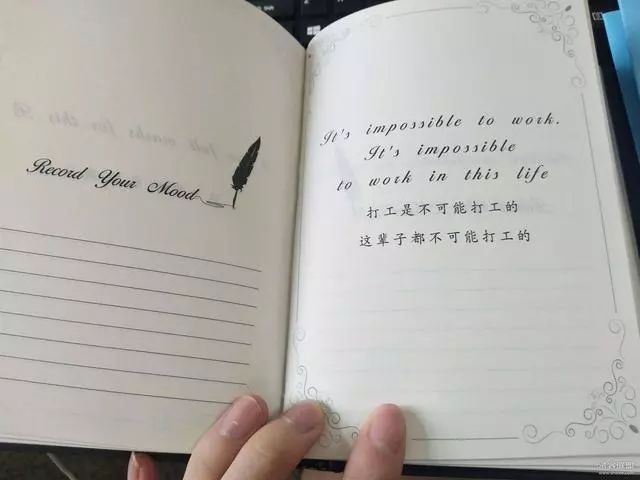 Record Your Mood
It's impossible to work.
It's impossible
to work in this life
打工是不可能打工的
这辈子都不可能打工的